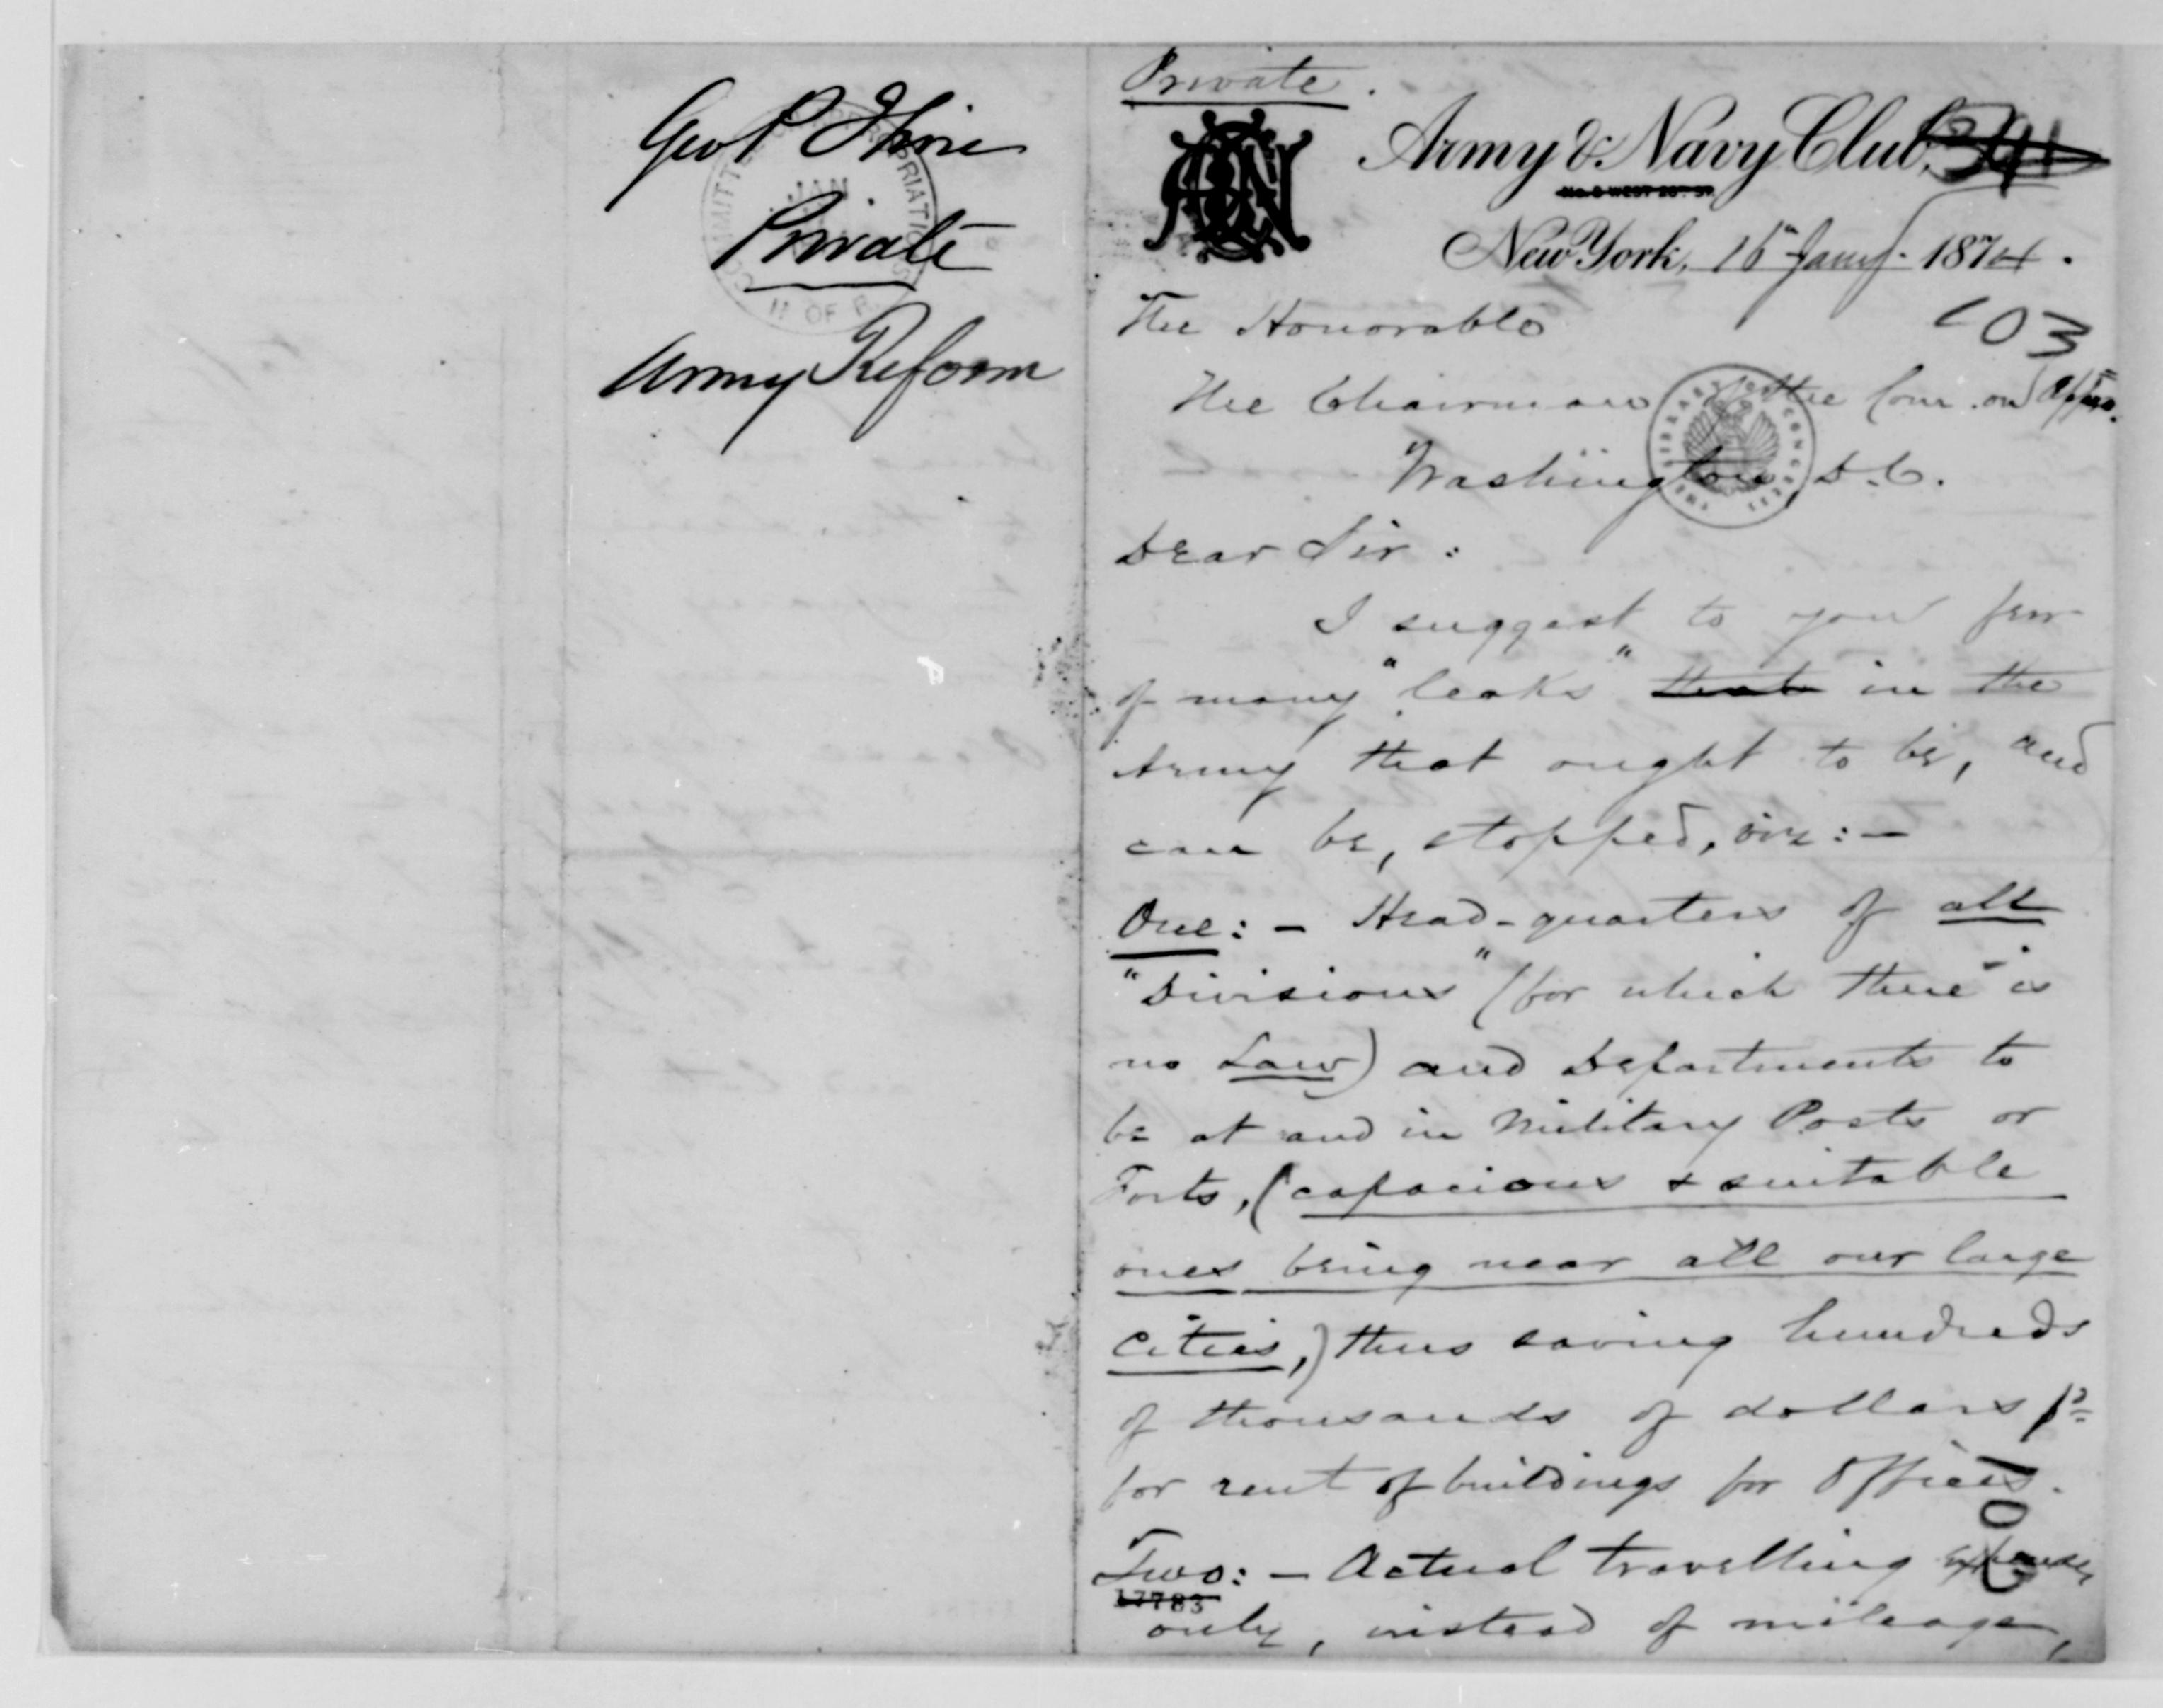 Geo P Ihrie
Private
Army Reform
COMMITTEE APPROPRIATIONS
JAN
H OF R.
Private.
Army & Navy Club,
New York, 16th Jany. 1874.
103
The Honorable
The Chairman of the Com. on Appro.
LIBRARY OF CONGRESS
Washington, D.C.
Dear Sir:
I suggest to you few
of many "leaks" that in the
Army that ought to be, and
can be, stopped, viz:—
One:— Head-quarters of all
"Divisions" (for which there is
no Law) and Departments to
be at and in Military Posts or
Forts, (capacious & suitable
ones being near all our large
cities,) thus saving hundreds
of thousands of dollars pd
for rent of buildings for Offices.
Two:— Actual travelling expenses
17783
only, instead of mileage,